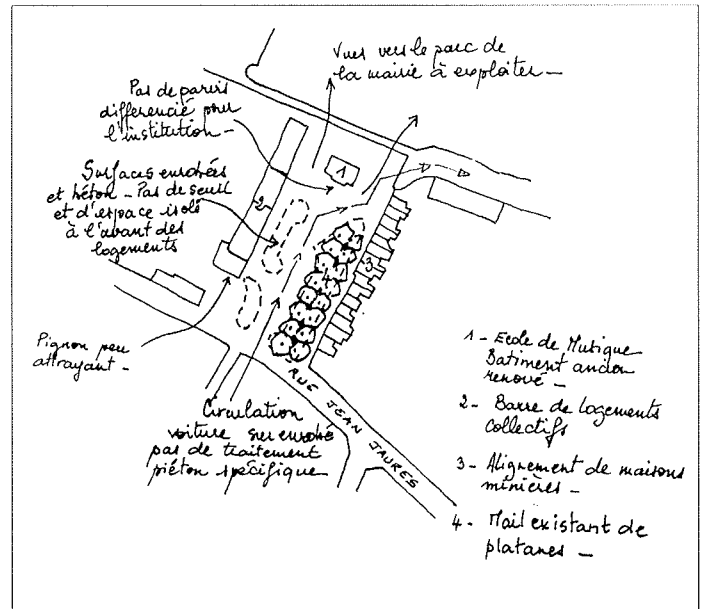 Vues vers le parc de
la mairie à exploiter -
Pas de parvis
differencié pour
l'institution -
Surfaces enrobées
et béton - Pas de seuil
et d'espace isolé
à l'avant des
logements
Pignon peu
attrayant -
Circulation
voiture sur enrobé
pas de traitement
piéton spécifique
RUE JEAN JAURES
1
2
3
4
1 - Ecole de Musique
Batiment ancien
renové -
2 - Barre de logements
collectifs
3 - Alignement de maisons
minières -
4 - Mail existant de
platanes -